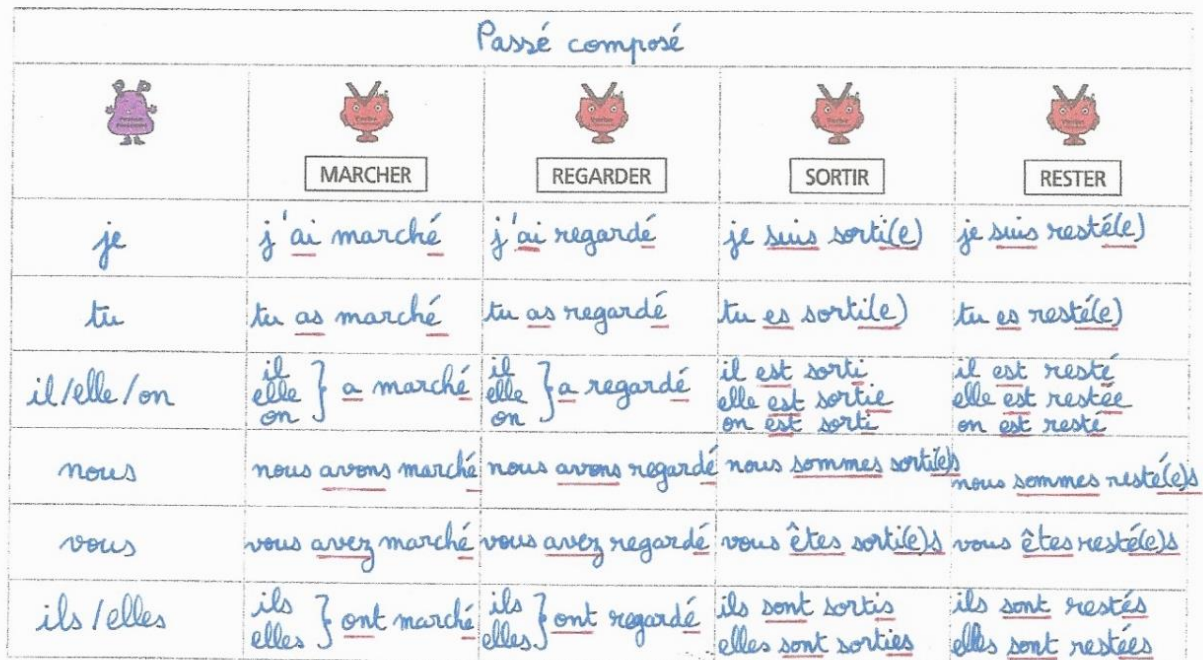 Passé composé
MARCHER
REGARDER
SORTIR
RESTER
je
j'ai marché
j'ai regardé
je suis sorti(e)
je suis resté(e)
tu
tu as marché
tu as regardé
tu es sorti(e)
tu es resté(e)
il/elle/on
il
elle
on
} a marché
il
elle
on
} a regardé
il est sorti
elle est sortie
on est sorti
il est resté
elle est restée
on est resté
nous
nous avons marché
nous avons regardé
nous sommes sorti(e)s
nous sommes resté(e)s
vous
vous avez marché
vous avez regardé
vous êtes sorti(e)s
vous êtes resté(e)s
ils/elles
ils
elles
} ont marché
ils
elles
} ont regardé
ils sont sortis
elles sont sorties
ils sont restés
elles sont restées